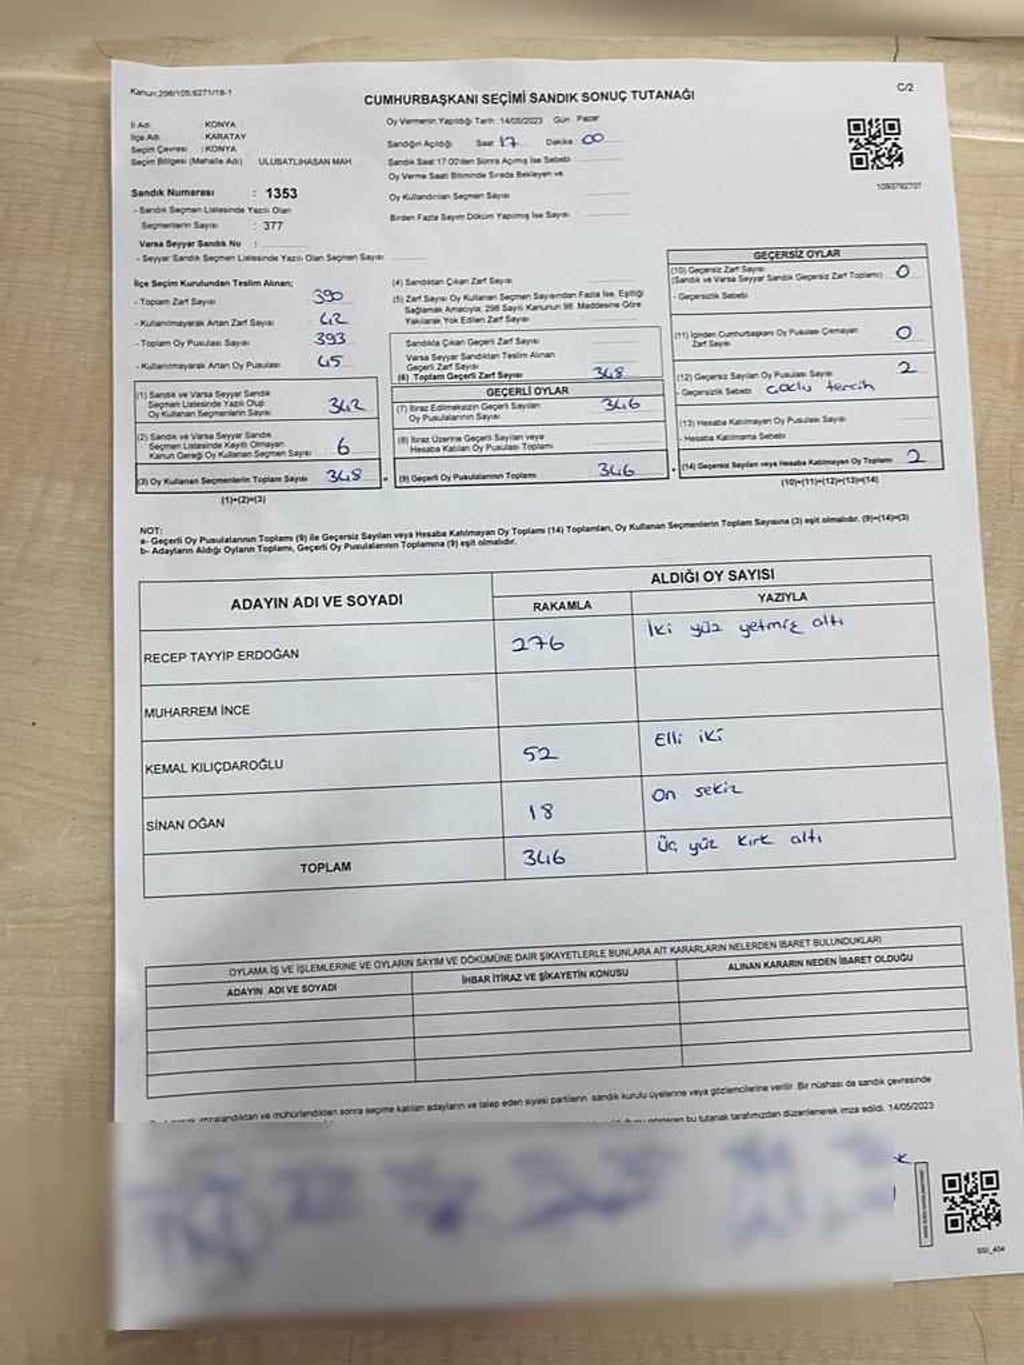 Kanun:298/105;6271/18-1
C/2
CUMHURBAŞKANI SEÇİMİ SANDIK SONUÇ TUTANAĞI
İl Adı : KONYA
İlçe Adı : KARATAY
Seçim Çevresi : KONYA
Seçim Bölgesi (Mahalle Adı) ULUBATLIHASAN MAH
Sandık Numarası : 1353
- Sandık Seçmen Listesinde Yazılı Olan
Seçmenlerin Sayısı : 377
Varsa Seyyar Sandık No :
- Seyyar Sandık Seçmen Listesinde Yazılı Olan Seçmen Sayısı
Oy Vermenin Yapıldığı Tarih :14/05/2023 Gün Pazar
Sandığın Açıldığı Saat 17 Dakika 00
Sandık Saat 17:00'den Sonra Açımış İse Sebebi
Oy Verme Saati Bitiminde Sırada Bekleyen ve
Oy Kullandırılan Seçmen Sayısı
Birden Fazla Sayım Döküm Yapılmış İse Sayısı
1093792707
İlçe Seçim Kurulundan Teslim Alınan;
- Toplam Zarf Sayısı 390
- Kullanılmayarak Artan Zarf Sayısı 42
- Toplam Oy Pusulası Sayısı 393
- Kullanılmayarak Artan Oy Pusulası 45
(1) Sandık ve Varsa Seyyar Sandık
Seçmen Listesinde Yazılı Olup
Oy Kullanan Seçmenlerin Sayısı 342
(2) Sandık ve Varsa Seyyar Sandık
Seçmen Listesinde Kayıtlı Olmayan
Kanun Gereği Oy Kullanan Seçmen Sayısı 6
(3) Oy Kullanan Seçmenlerin Toplam Sayısı 348
(1)+(2)=(3)
(4) Sandıktan Çıkan Zarf Sayısı
(5) Zarf Sayısı Oy Kullanan Seçmen Sayısından Fazla İse, Eşitliği
Sağlamak Amacıyla; 298 Sayılı Kanunun 98. Maddesine Göre
Yakılarak Yok Edilen Zarf Sayısı
Sandıkta Çıkan Geçerli Zarf Sayısı
Varsa Seyyar Sandıktan Teslim Alınan
Geçerli Zarf Sayısı
(6) Toplam Geçerli Zarf Sayısı 348
GEÇERLİ OYLAR
(7) İtiraz Edilmeksizin Geçerli Sayılan
Oy Pusulalarının Sayısı 346
(8) İtiraz Üzerine Geçerli Sayılan veya
Hesaba Katılan Oy Pusulası Toplamı
= (9) Geçerli Oy Pusulalarının Toplamı 346
GEÇERSİZ OYLAR
(10) Geçersiz Zarf Sayısı
(Sandık ve Varsa Seyyar Sandık Geçersiz Zarf Toplamı) 0
- Geçersizlik Sebebi
(11) İçinden Cumhurbaşkanı Oy Pusulası Çıkmayan
Zarf Sayısı 0
(12) Geçersiz Sayılan Oy Pusulası Sayısı 2
- Geçersizlik Sebebi çoklu tercih
(13) Hesaba Katılmayan Oy Pusulası Sayısı
- Hesaba Katılmama Sebebi
+ (14) Geçersiz Sayılan veya Hesaba Katılmayan Oy Toplamı 2
(10)+(11)+(12)+(13)=(14)
NOT:
a- Geçerli Oy Pusulalarının Toplamı (9) ile Geçersiz Sayılan veya Hesaba Katılmayan Oy Toplamı (14) Toplamları, Oy Kullanan Seçmenlerin Toplam Sayısına (3) eşit olmalıdır. (9)+(14)=(3)
b- Adayların Aldığı Oyların Toplamı, Geçerli Oy Pusulalarının Toplamına (9) eşit olmalıdır.
ADAYIN ADI VE SOYADI
ALDIĞI OY SAYISI
RAKAMLA YAZIYLA
RECEP TAYYİP ERDOĞAN 276 İki yüz yetmiş altı
MUHARREM İNCE
KEMAL KILIÇDAROĞLU 52 Elli iki
SİNAN OĞAN 18 On sekiz
TOPLAM 346 Üç yüz kırk altı
OYLAMA İŞ VE İŞLEMLERİNE VE OYLARIN SAYIM VE DÖKÜMÜNE DAİR ŞİKAYETLERLE BUNLARA AİT KARARLARIN NELERDEN İBARET BULUNDUKLARI
ADAYIN ADI VE SOYADI İHBAR İTİRAZ VE ŞİKAYETİN KONUSU ALINAN KARARIN NEDEN İBARET OLDUĞU
imzalandıktan ve mühürlendikten sonra seçime katılan adayların ve talep eden siyasi partilerin sandık kurulu üyelerine veya gözlemcilerine verilir. Bir nüshası da sandık çevresinde
gösteren bu tutanak tarafımızdan düzenlenerek imza edildi. 14/05/2023